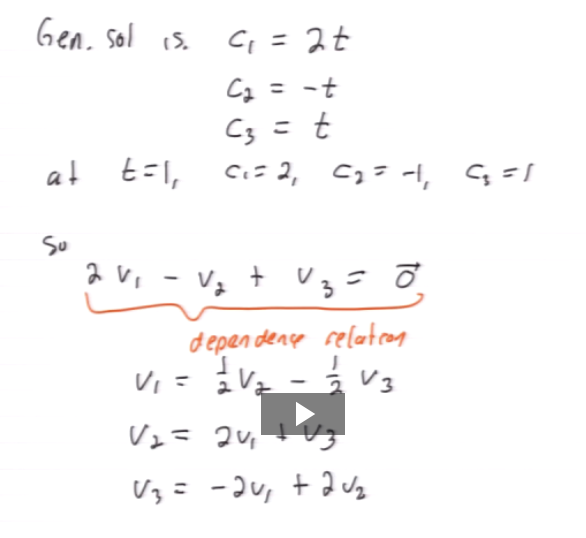 Gen. sol is. C₁ = 2t
C₂ = -t
C₃ = t
at t=1, C₁= 2, C₂ = -1, C₃ = 1
So
2 v₁ - v₂ + v₃ = 0⃗
dependence relation
v₁ = ½ v₂ - ½ v₃
v₂ = 2v₁ + v₃
v₃ = -2v₁ + 2v₂